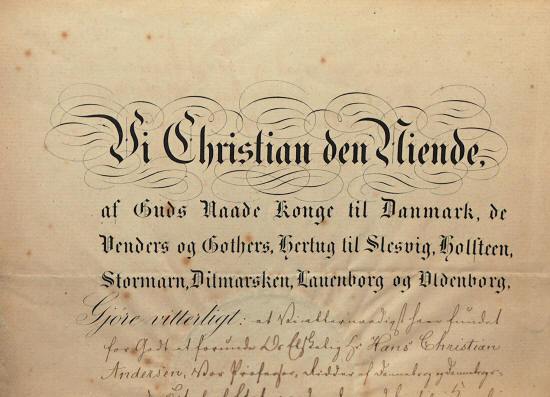 Vi Christian den Niende,
af Guds Naade Konge til Danmark, de
Venders og Gothers, Hertug til Slesvig, Holsteen,
Stormarn, Ditmarsken, Lauenborg og Oldenborg,
Gjøre vitterligt: at Vi allernaadigst have fundet
for Godt at forunde Os Elskelig Hr Hans Christian
Andersen, Vor Professor, Ridder af Dannebrog og Dannebrogs-